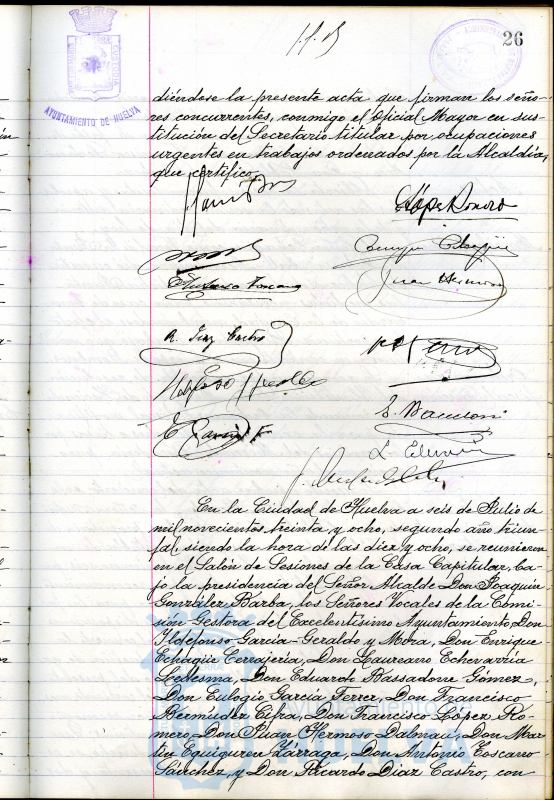 26
AYUNTAMIENTO DE HUELVA
diéndose la presente acta que firman los seño-
res concurrentes, conmigo el Oficial Mayor en sus-
titución del Secretario titular por ocupaciones
urgentes en trabajos ordenados por la Alcaldía,
que certifico.
López Romero
Juan Hermoso
R. Diaz Castro
E. Garcia F
En la Ciudad de Huelva a seis de Julio de
mil novecientos treinta y ocho, segundo año triun-
fal, siendo la hora de las diez y ocho, se reunieron
en el Salón de Sesiones de la Casa Capitular, ba-
jo la presidencia del Señor Alcalde Don Joaquin
González Barba, los Señores Vocales de la Comi-
sión Gestora del Excelentísimo Ayuntamiento, Don
Ildefonso Garcia-Geraldo y Mora, Don Enrique
Echagüe Cerrajería, Don Laureano Echevarria
Ledesma, Don Eduardo Bassadone Gómez,
Don Eulogio Garcia Ferrer, Don Francisco
Bermudez Cifra, Don Francisco López Ro-
mero, Don Juan Hermoso Dalmau, Don Mar-
tin Eguiguren Zárraga, Don Antonio Toscano
Sánchez, y Don Ricardo Diaz Castro, con